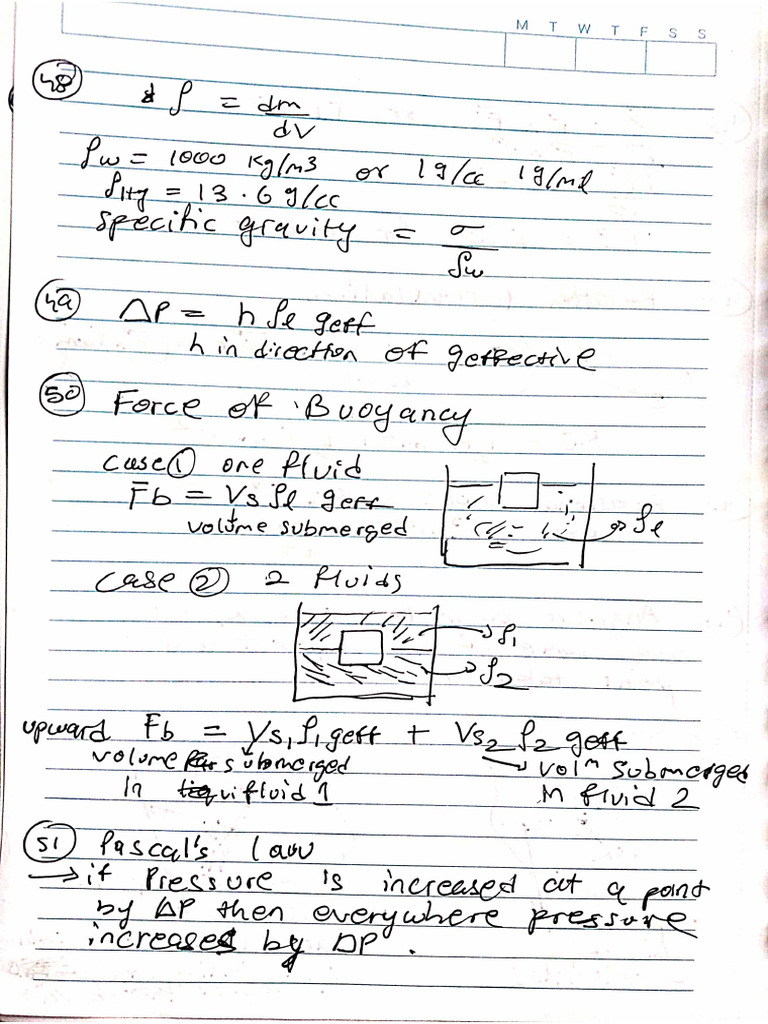 M T W T F S S
48 ρ = dm/dV
ρw = 1000 Kg/m3 or 1g/cc 1g/ml
ρHg = 13.6 g/cc
specific gravity = σ/ρw
49 ΔP = h ρl geff
h in direction of geffective
50 Force of Buoyancy
case ① one fluid
Fb = Vs ρl geff
volume submerged
ρl
case ② 2 fluids
ρ1
ρ2
upward Fb = Vs1 ρ1 geff + Vs2 ρ2 geff
volume submerged
In fluid 1
→ volm submerged
In fluid 2
51 Pascal's law
→ if Pressure is increased at a point
by ΔP then everywhere pressure
increases by ΔP.